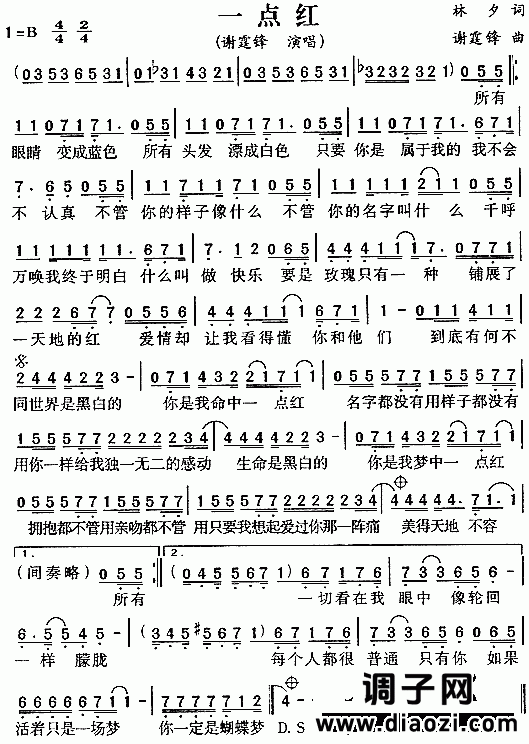 一点红
1=B 4/4 2/4
(谢霆锋 演唱)
林夕 词
谢霆锋 曲
(0353 6531 | 01♭31 4321 | 0353 6531 | ♭3232 321) 055 |
所有
110717 1. 055 | 110717 1. 055 | 110717 1. 671 |
眼睛 变成蓝色 所有头发 漂成白色 只要 你是 属于我的 我不会
7. 65 055 | 11711 71 055 | 11111 1211 011 |
不 认真 不管 你的样子像什么 不管 你的名字叫什 么 千呼
111111 1. 671 | 7. 12 065 | 444111 7. 0771 |
万唤我终于明白 什么叫 做 快乐 要是 玫瑰只有一 种 铺展了
222677 0222 | 4442341 671 | 1 - 0411 411 |
一天地的红 爱情却 让我看得懂 你和他 们 到底有何不
2444223 - | 0714322171 1 | 1155577155577 |
同世界是黑白的 你是我命中一 点红 名字都没有用样子都没有
1555772222234 | 4444223 - | 0714322171 1 |
用你一样给我独一无二的感动 生命是黑白的 你是我梦中一 点红
0555577155577 | 1555772222234 | 4444477 71. 1 |
拥抱都不管用亲吻都不管 用只要我想起爱过你那一阵痛 美得天地 不容
1. 2.
(间奏略) 055 :| (045 5671) 7176 | 733656 - |
所有 一切看在我 眼中 像轮回
6. 5545 - | (345#5671) 67176 | 7336567 |
一样 朦胧 每个人都很 普通 只有你 如果
6666671 - | 7777712 - | D.S
活着只是一场梦 你一定是蝴蝶梦
调子网
www.diaozi.com